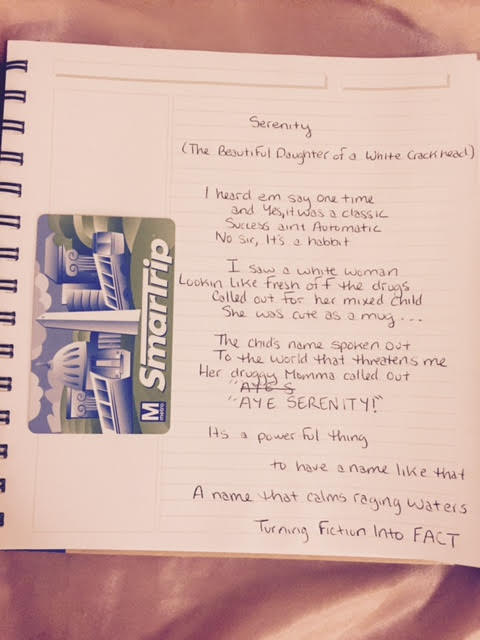 Serenity
(The Beautiful Daughter of a White Crackhead)
I heard em say one time
and Yes, it was a classic
Success aint Automatic
No sir, It's a habbit
I saw a white woman
Lookin like fresh off the drugs
Called out for her mixed child
She was cute as a mug...
The chid's name spoken out
To the world that threatens me
Her druggy Momma called out
"AYE S
"AYE SERENITY!"
Its a powerful thing
to have a name like that
A name that calms raging waters
Turning Fiction Into FACT
M metro SmarTrip